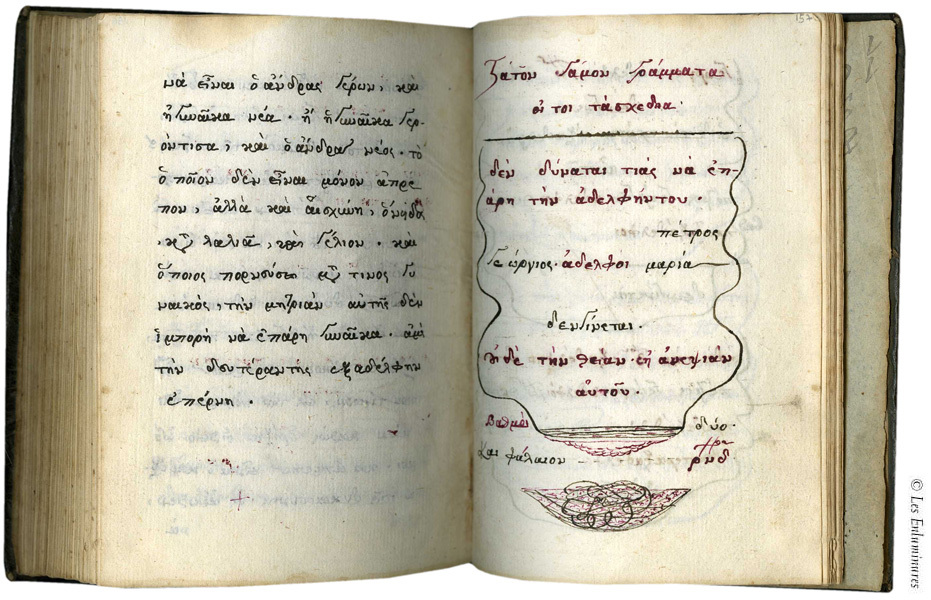 νὰ εἶναι ὁ ἄνδρας γέρων, καὶ
ἡ γυναῖκα νέα· ἢ ἡ γυναῖκα γερ-
όντισα, καὶ ὁ ἄνδρας νέος· τὸ
ὁποῖον δὲν εἶναι μόνον ἀπρε
πον, ἀλλὰ καὶ αἰσχύνη,
λαλιᾶ, γέλιον· καὶ
ὅποιος πορνεύσει τινος γυ
ναικὸς, τὴν μητριὰν αὐτῆς δὲν
ἰμπορῆ νὰ ἐπάρη γυναῖκα·
τὴν δευτέραν της ἐξαδέλφην
ἐπέρνη·
τῶν γάμον γράμματα
τάσχεδια·
δὲν δύναται τιὰς νὰ ἐπ-
άρη τὴν ἀδελφήντου·
πέτρος
Γεώργιος· ἀδελφοι μαρία
δενγίνεται·
τὴν θείαν· ἀνεψιὰν
αὐτοῦ·
Βαθμοὶ δύο·
ρνδ
157
© Les Enluminures